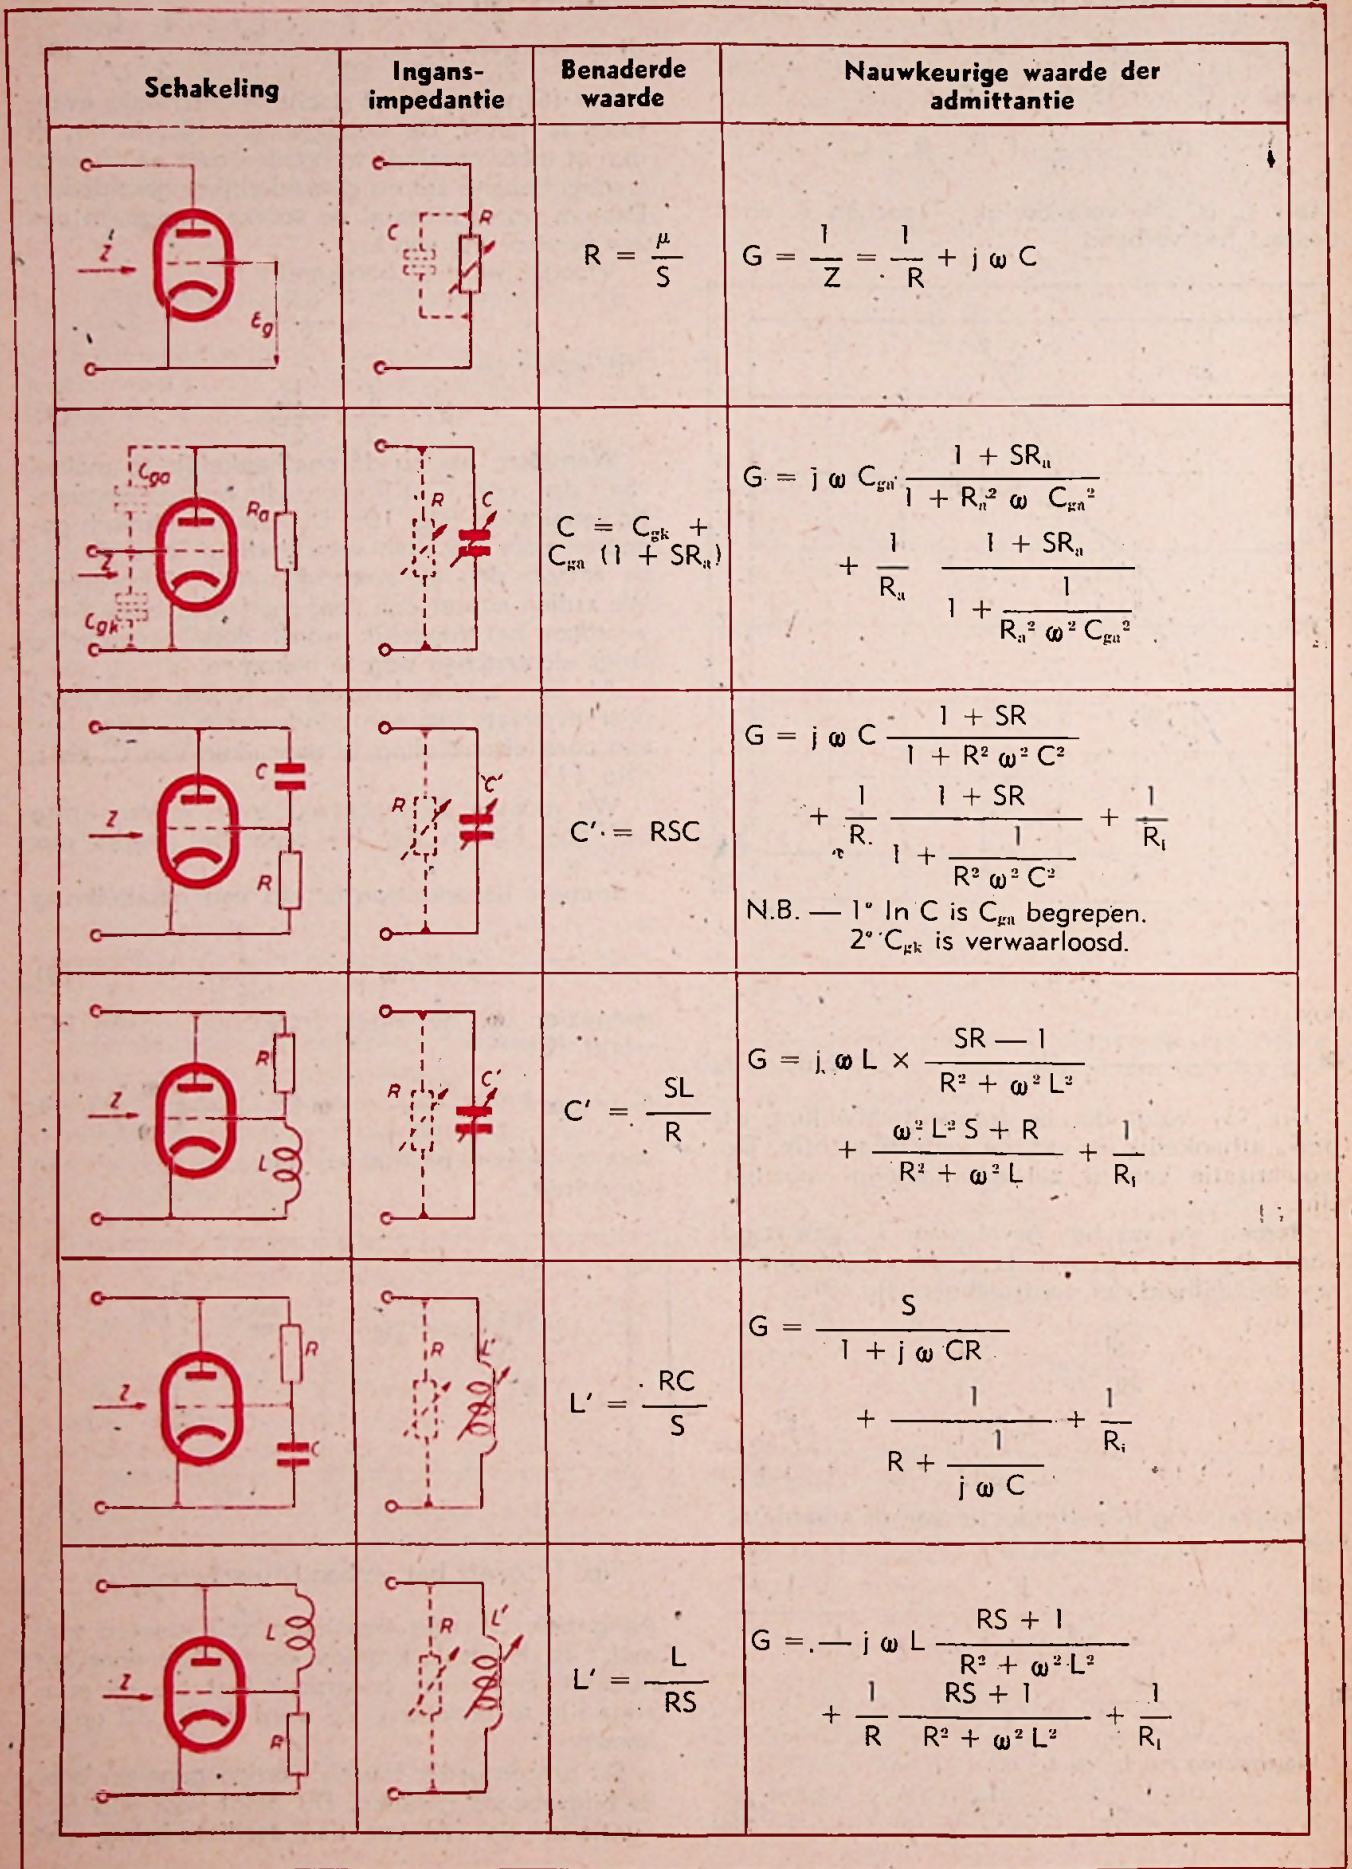 Schakeling
Ingans-
impedantie
Benaderde
waarde
Nauwkeurige waarde der
admittantie
Z
εg
C
R
R = μ / S
G = 1 / Z = 1 / R + j ω C
Cga
Ra
Z
Cgk
R
C
C = Cgk +
Cga (1 + SRa)
G = j ω Cga (1 + SRa) / (1 + Ra² ω Cga²)
+ 1 / Ra (1 + SRa) / (1 + 1 / (Ra² ω² Cga²))
Z
C
R
R
C'
C' = RSC
G = j ω C (1 + SR) / (1 + R² ω² C²)
+ 1 / R. (1 + SR) / (1 + 1 / (R² ω² C²)) + 1 / Ri
N.B. — 1° In C is Cga begrepen.
2° Cgk is verwaarloosd.
Z
R
L
R
C'
C' = SL / R
G = j ω L × (SR — 1) / (R² + ω² L²)
+ (ω² L² S + R) / (R² + ω² L) + 1 / Ri
Z
R
C
R
L'
L' = RC / S
G = S / (1 + j ω CR)
+ 1 / (R + 1 / (j ω C)) + 1 / Ri
Z
L
R
R
L'
L' = L / RS
G = — j ω L (RS + 1) / (R² + ω² L²)
+ 1 / R (RS + 1) / (R² + ω² L²) + 1 / Ri